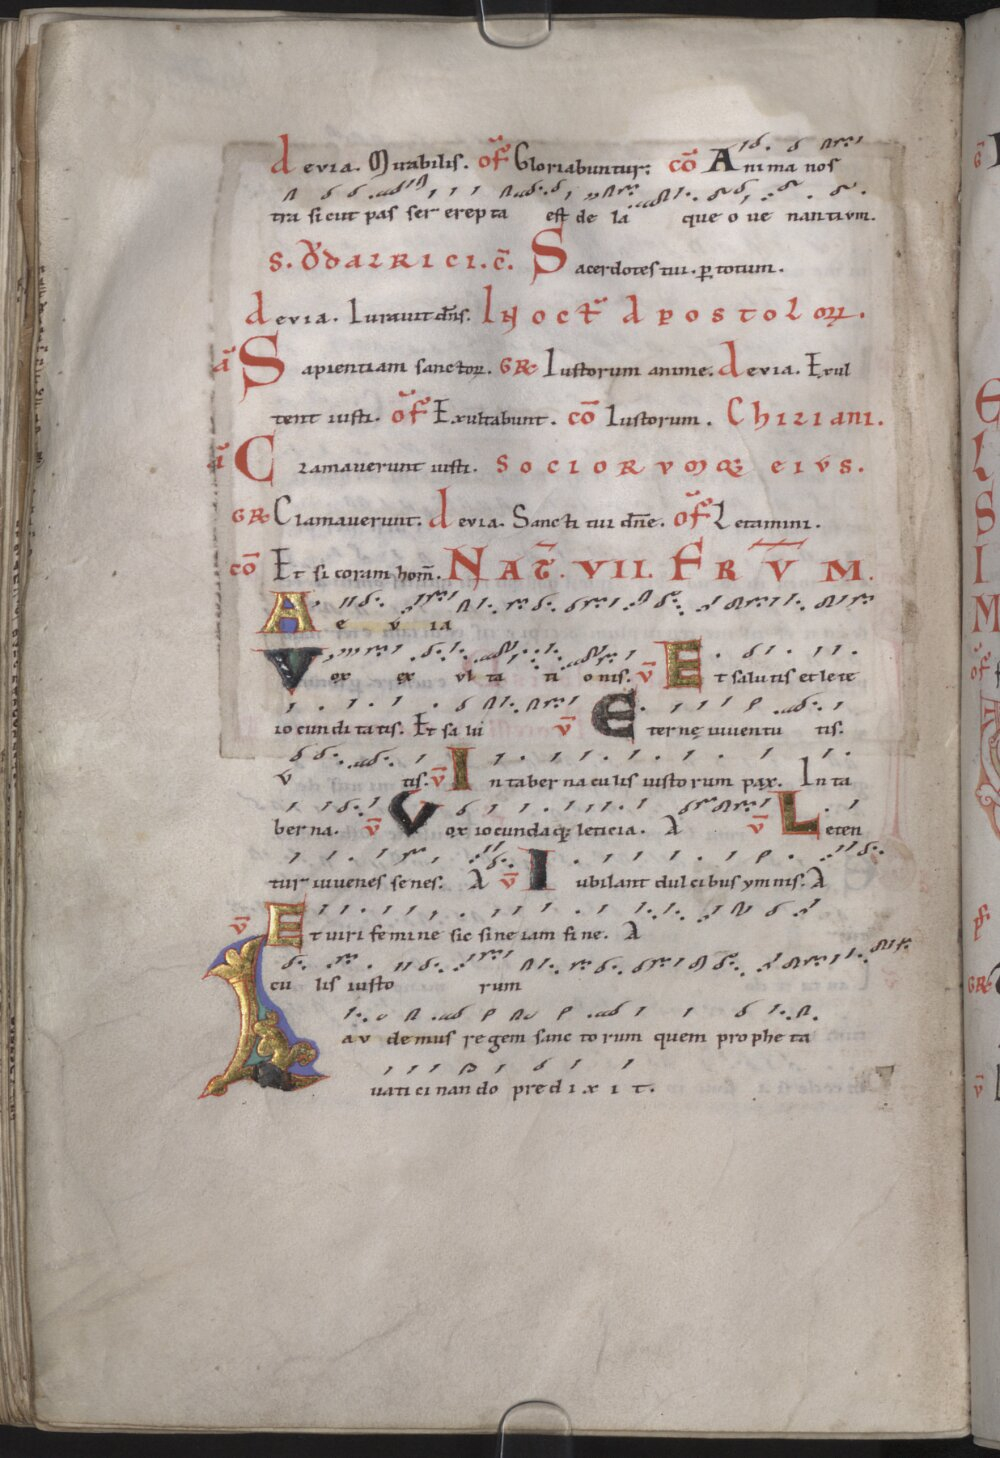 devia. Mirabilis. of̄ Gloriabuntur: cō Anima nos
tra sicut pas ser erep ta est de la que o ve nantivm.
S. ỏdalrici. c̄. Sacerdotes tui. ꝑ totum.
devia. Iuravit dn̄s. IN oct̄ apostolorꝝ.
ā Sapientiam sanctorꝝ. GR Iustorum anime. devia. Exul
tent iusti. of̄ Exultabunt. cō Iustorum. Chiliani.
ā Clamaverunt iusti. sociorvmqꝫ eivs.
GR Clamaverunt. devia. Sancti tui dn̄e. of̄ Letamini.
cō Et si coram hom̄. NAT̄. VII. FRV̄M.
A e v ia
Vox ex vl ta ti onis. v̄ Et salutis et lete
iocunditatis. Et sa lu v̄ Eternę iuventu tis.
v tis. v̄ In taber na culis iusto rum pax. In ta
berna. v̄ Vox iocundaqꝫ leticia. A v̄ Leten
tur iuvenes senes. A v̄ Iubilant dulcibus ymnis. A
v̄ Et viri femine sic sine iam fine. A
cu lis iusto rum
Lav demus regem sanc to rum quem prophe ta
vati ci nan do predixit.